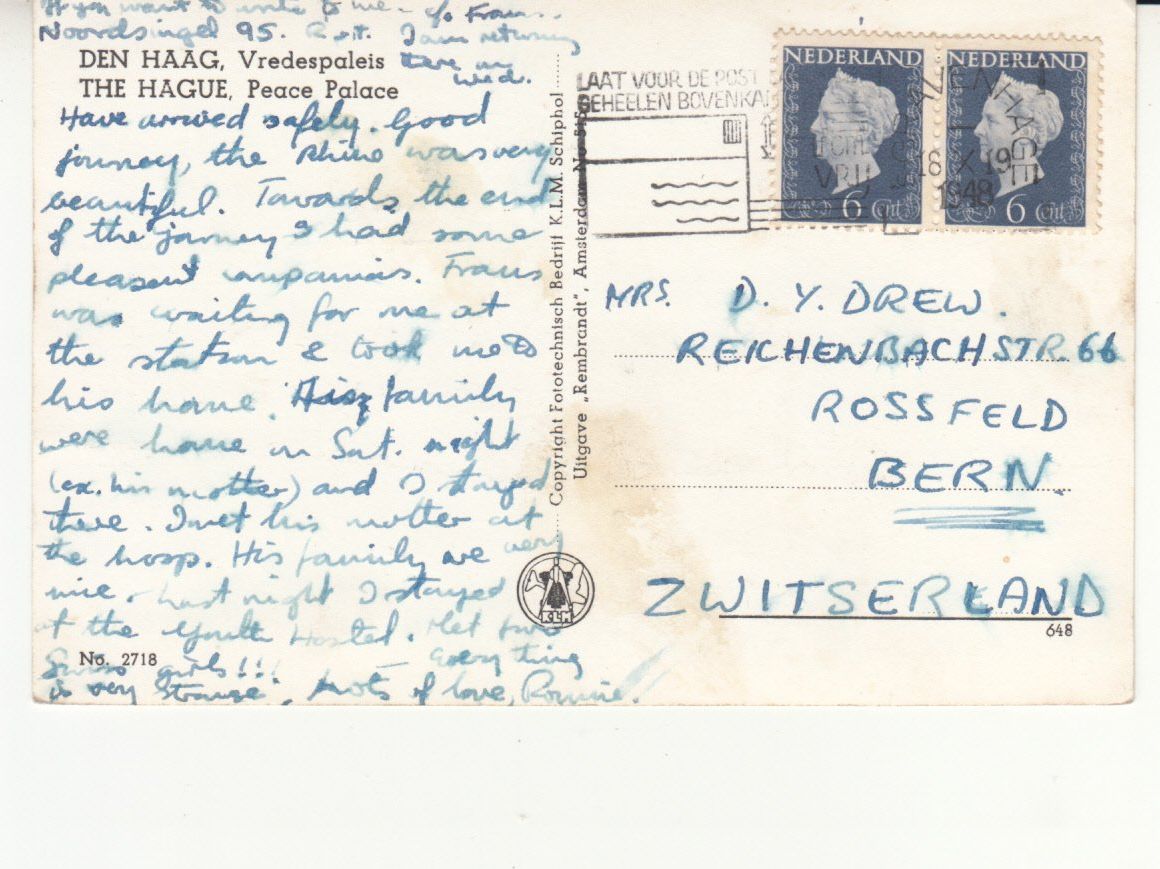 If you want to write to me - c/o Frans.
Noordsingel 95. I am returning
there on
Wed.
DEN HAAG, Vredespaleis
THE HAGUE, Peace Palace
Have arrived safely. Good
journey, the Rhine was very
beautiful. Towards the end
of the journey I had some
pleasant companions. Frans
was waiting for me at
the station & took me to
his home. His family
were home on Sat. night
(ex. his mother) and I stayed
there. I met his mother at
the hosp. His family are very
nice. Last night I stayed
at the Youth Hostel. Met two
Swiss girls!!! Everything
is very strange. Lots of love, Ronnie.
No. 2718
Copyright Fototechnisch Bedrijf K.L.M. Schiphol
Uitgave „Rembrandt", Amsterdam
KLM
LAAT VOOR DE POST
GEHEELEN BOVENKA
NEDERLAND
6 Cent
NEDERLAND
6 Cent
NHAGE
VRIJ
8 X 19
1948
MRS. D. Y. DREW.
REICHENBACHSTR. 66
ROSSFELD
BERN.
ZWITSERLAND
648